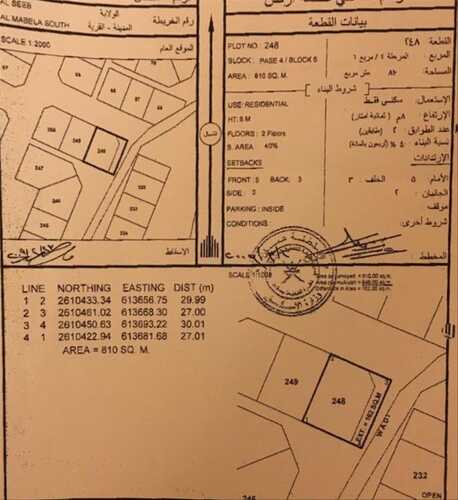 AL SEEB
الولاية
AL MABELA SOUTH
المدينة - القرية
رقم الخريطة
SCALE 1:2000
الموقع العام
248
249
247
الاسقاط
شمال
بيانات القطعة
PLOT NO : 248
القطعة ٢٤٨
BLOCK : PASE 4 / BLOCK 6
المربع المرحلة ٤ / مربع ٦
AREA : 810 SQ. M.
المساحة: متر مربع
شروط البناء
USE: RESIDENTIAL
الإستعمال: سكني فقط
HT: 8 M
الإرتفاع: ٨م ( ثمانية امتار)
FLOORS : 2 Floors
عدد الطوابق ٢ (طابقين)
S. AREA 40%
نسبة البناء ٤٠٪ (أربعون بالمائة)
SETBACKS
الإرتدادات
FRONT : 5 BACK : 3
الأمام : ٥ الخلف : ٣
SIDE : 2
الجانبان : ٢
PARKING : INSIDE
موقف
CONDITIONS
شروط أخرى:
المخطط :
SCALE 1:1000
LINE NORTHING EASTING DIST (m)
1 2 2610433.34 613656.75 29.99
2 3 2610461.02 613668.30 27.00
3 4 2610450.63 613693.22 30.01
4 1 2610422.94 613681.68 27.01
AREA = 810 SQ. M.
249
248
EXT. = 162 SQ.M
WADI
232
OPEN